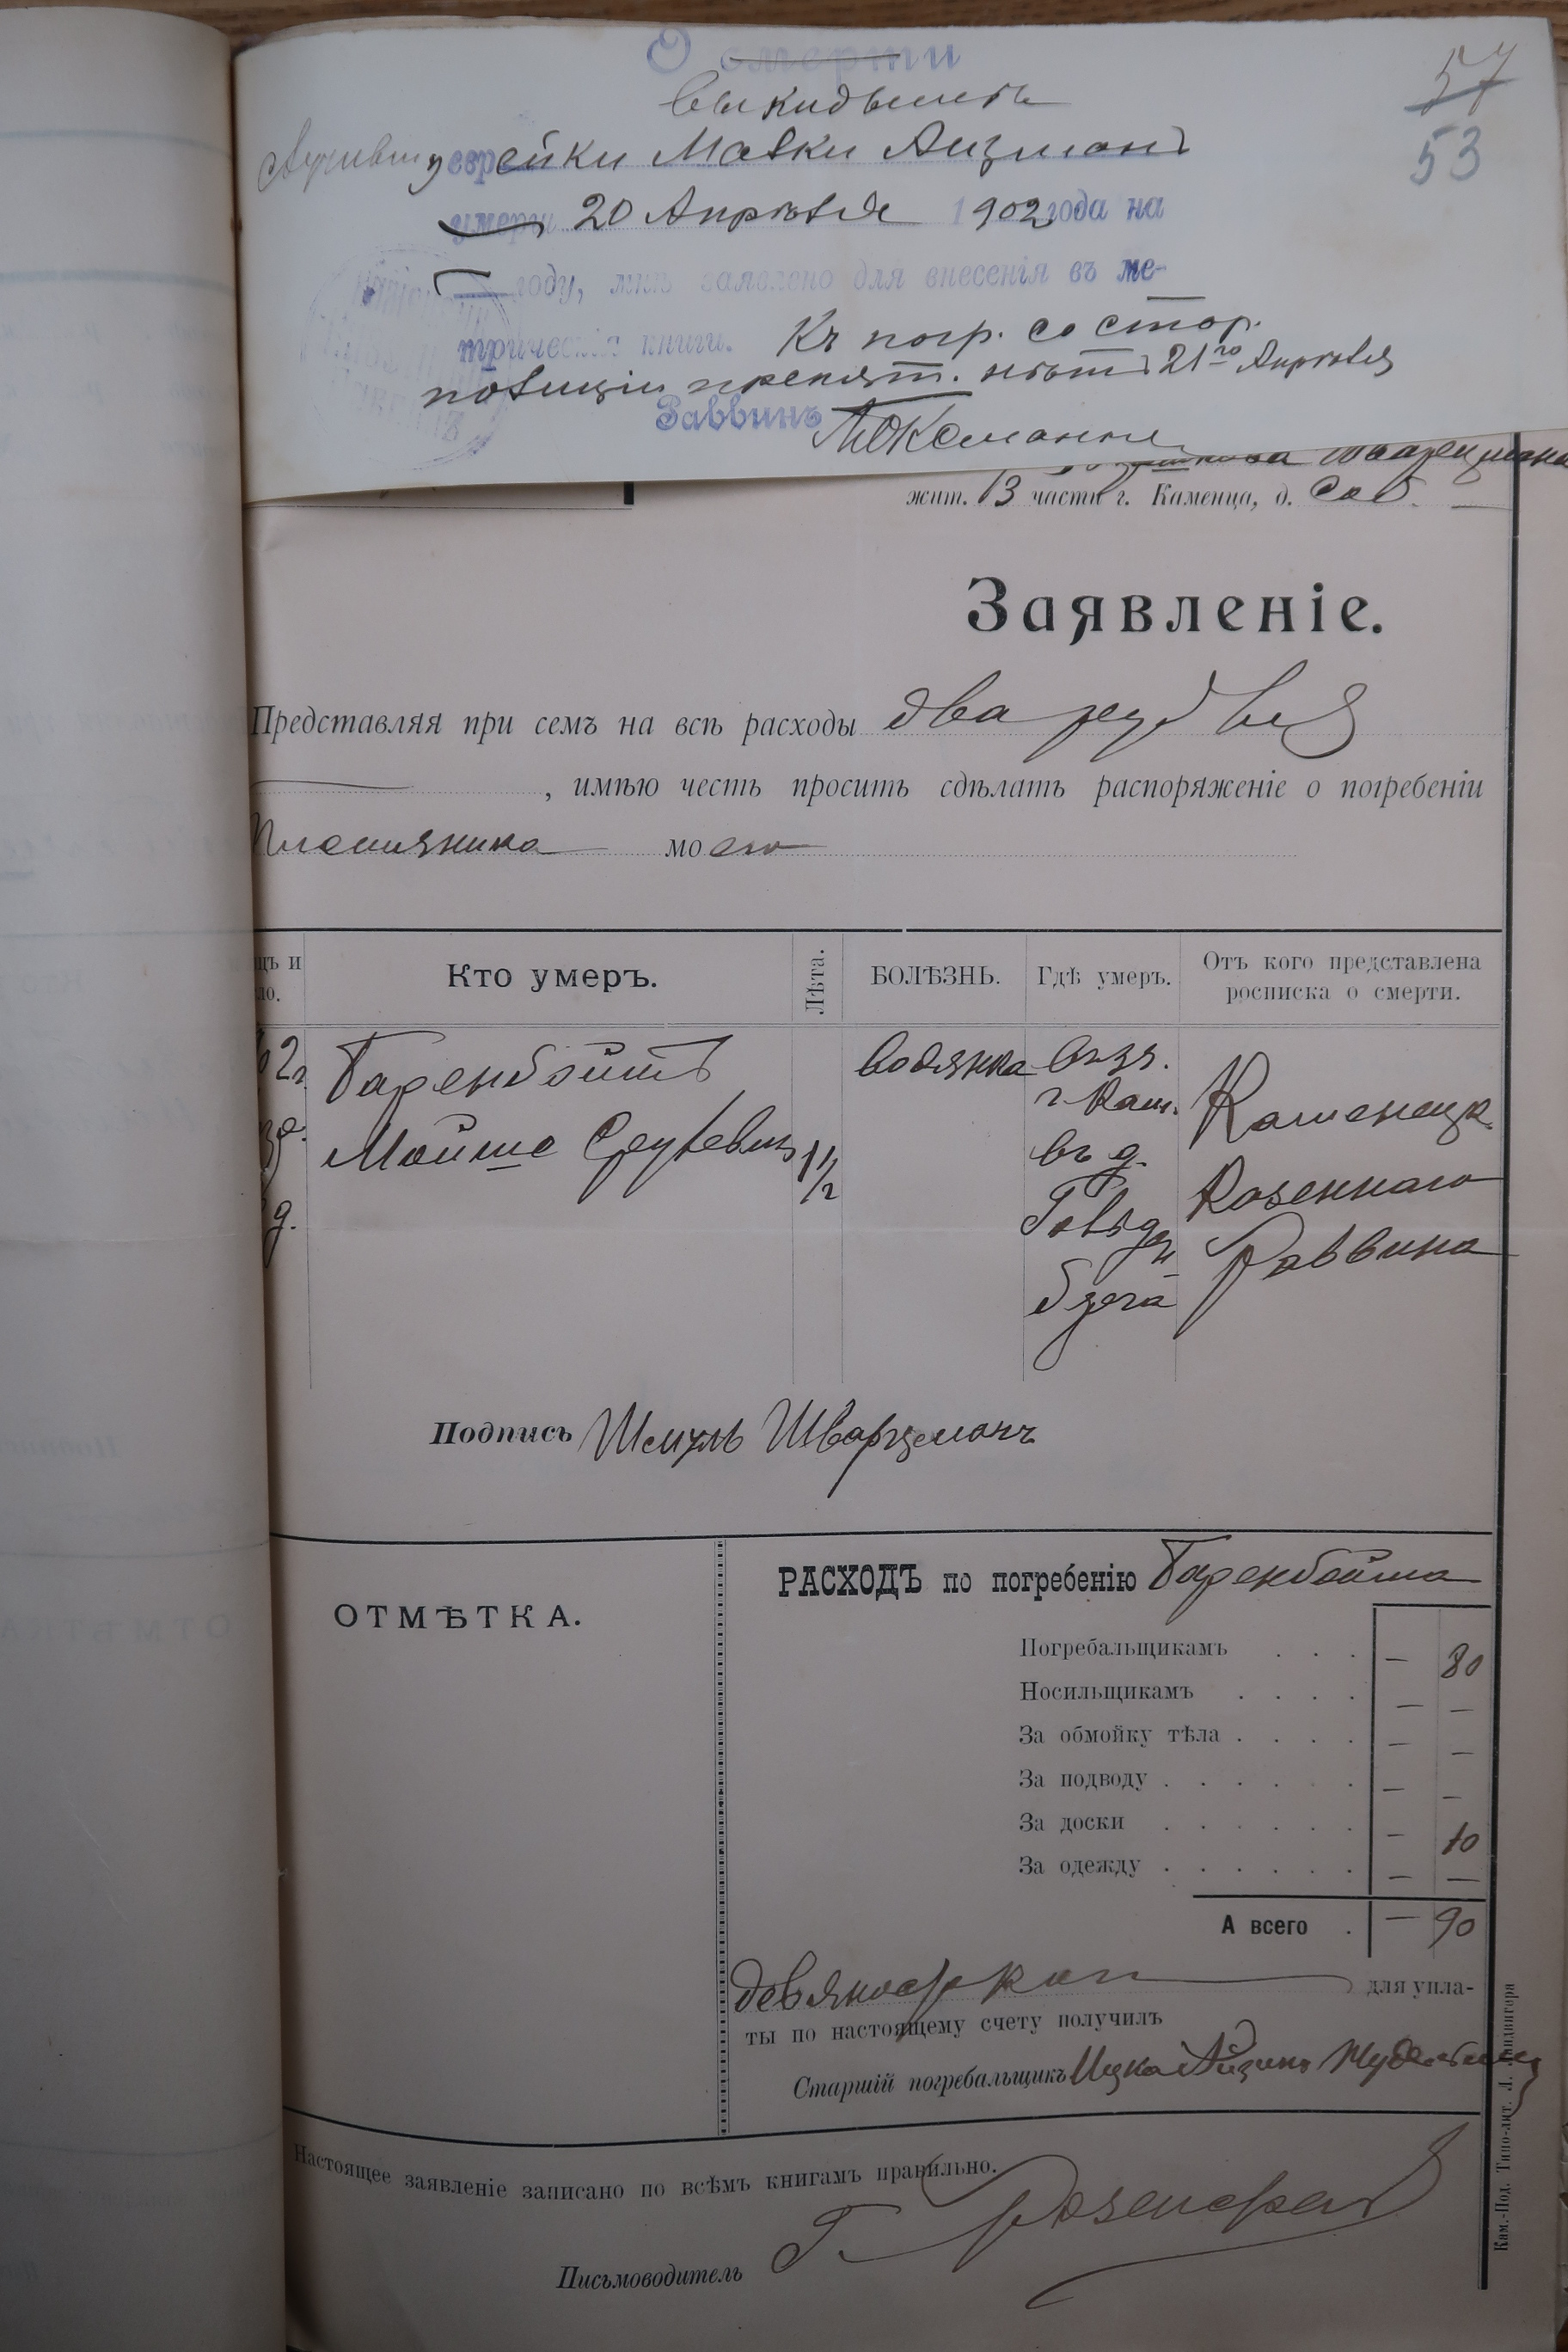 О смерти
57
выкидышѣ
53
еврейки Малки Айзманъ
умерш 20 Апрѣля 1902 года на
году, мнѣ заявлено для внесенія въ ме-
трическія книги. Къ погр. со стор.
полиціи препят. нѣтъ 21го Апрѣля
Раввинъ
Шварцмана
жит. 3 части г. Каменца, д. соб.
Заявленіе.
Представляя при семъ на всѣ расходы два рубля
, имѣю честь просить сдѣлать распоряженіе о погребеніи
Племянника моего
Кто умеръ.
Лѣта.
БОЛѢЗНЬ.
Гдѣ умеръ.
Отъ кого представлена
росписка о смерти.
Баренбоймъ
Мойше Срулевичъ
1 1/2
водянка
г. Кам.
въ д.
Гольден
берга
Каменецк.
Казеннаго
Раввина
Подпись Шмуль Шварцманъ
ОТМѢТКА.
РАСХОДЪ по погребенію Баренбойма
Погребальщикамъ . . . — 80
Носильщикамъ . . . . — —
За обмойку тѣла . . . . — —
За подводу . . . . . — —
За доски . . . . . — 10
За одежду . . . . . — —
А всего . — 90
девяносто коп для упла-
ты по настоящему счету получилъ
Старшій погребальщикъ Ицко Айзинъ
Настоящее заявленіе записано по всѣмъ книгамъ правильно.
Письмоводитель Г.
Кам.-Под. Типо-лит. Л.